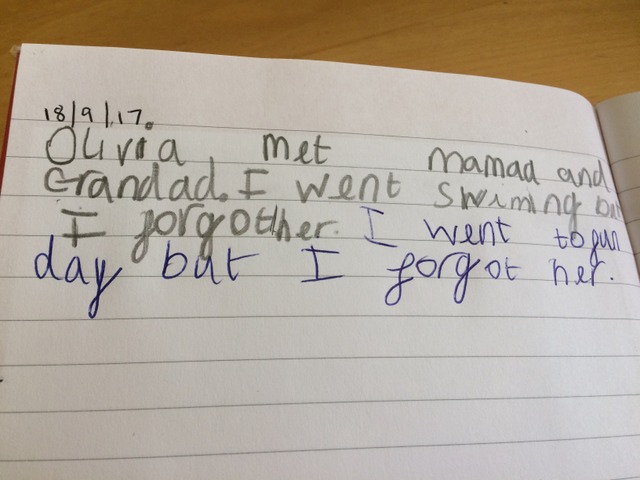 18/9/17.
Olivia met mamad and
Grandad. I went swiming but
I forgother. I went to gun
day but I forgot her.